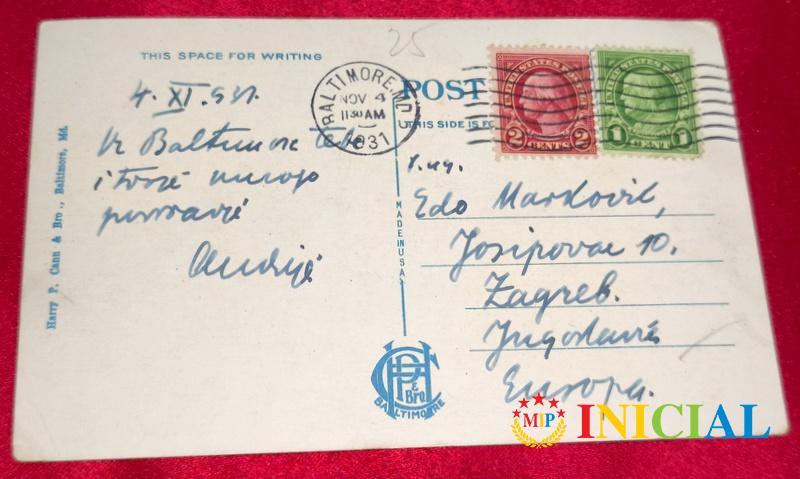 25
THIS SPACE FOR WRITING
4. XI. 931.
Iz Baltimore Tebe
i tvoje mnogo
pozdravlje
Andrija
Harry P. Cann & Bro., Baltimore, Md.
BALTIMORE, MD.
NOV 4
11 30 AM
1931
POST
THIS SIDE IS FO
UNITED STATES POSTAGE
2 CENTS 2
UNITED STATES POSTAGE
1 CENT 1
MADE IN USA
Edo Marković,
Josipovac 10.
Zagreb.
Jugoslavia
Europa.
HPC
& Bro.
BALTIMORE
MIP
INICIAL